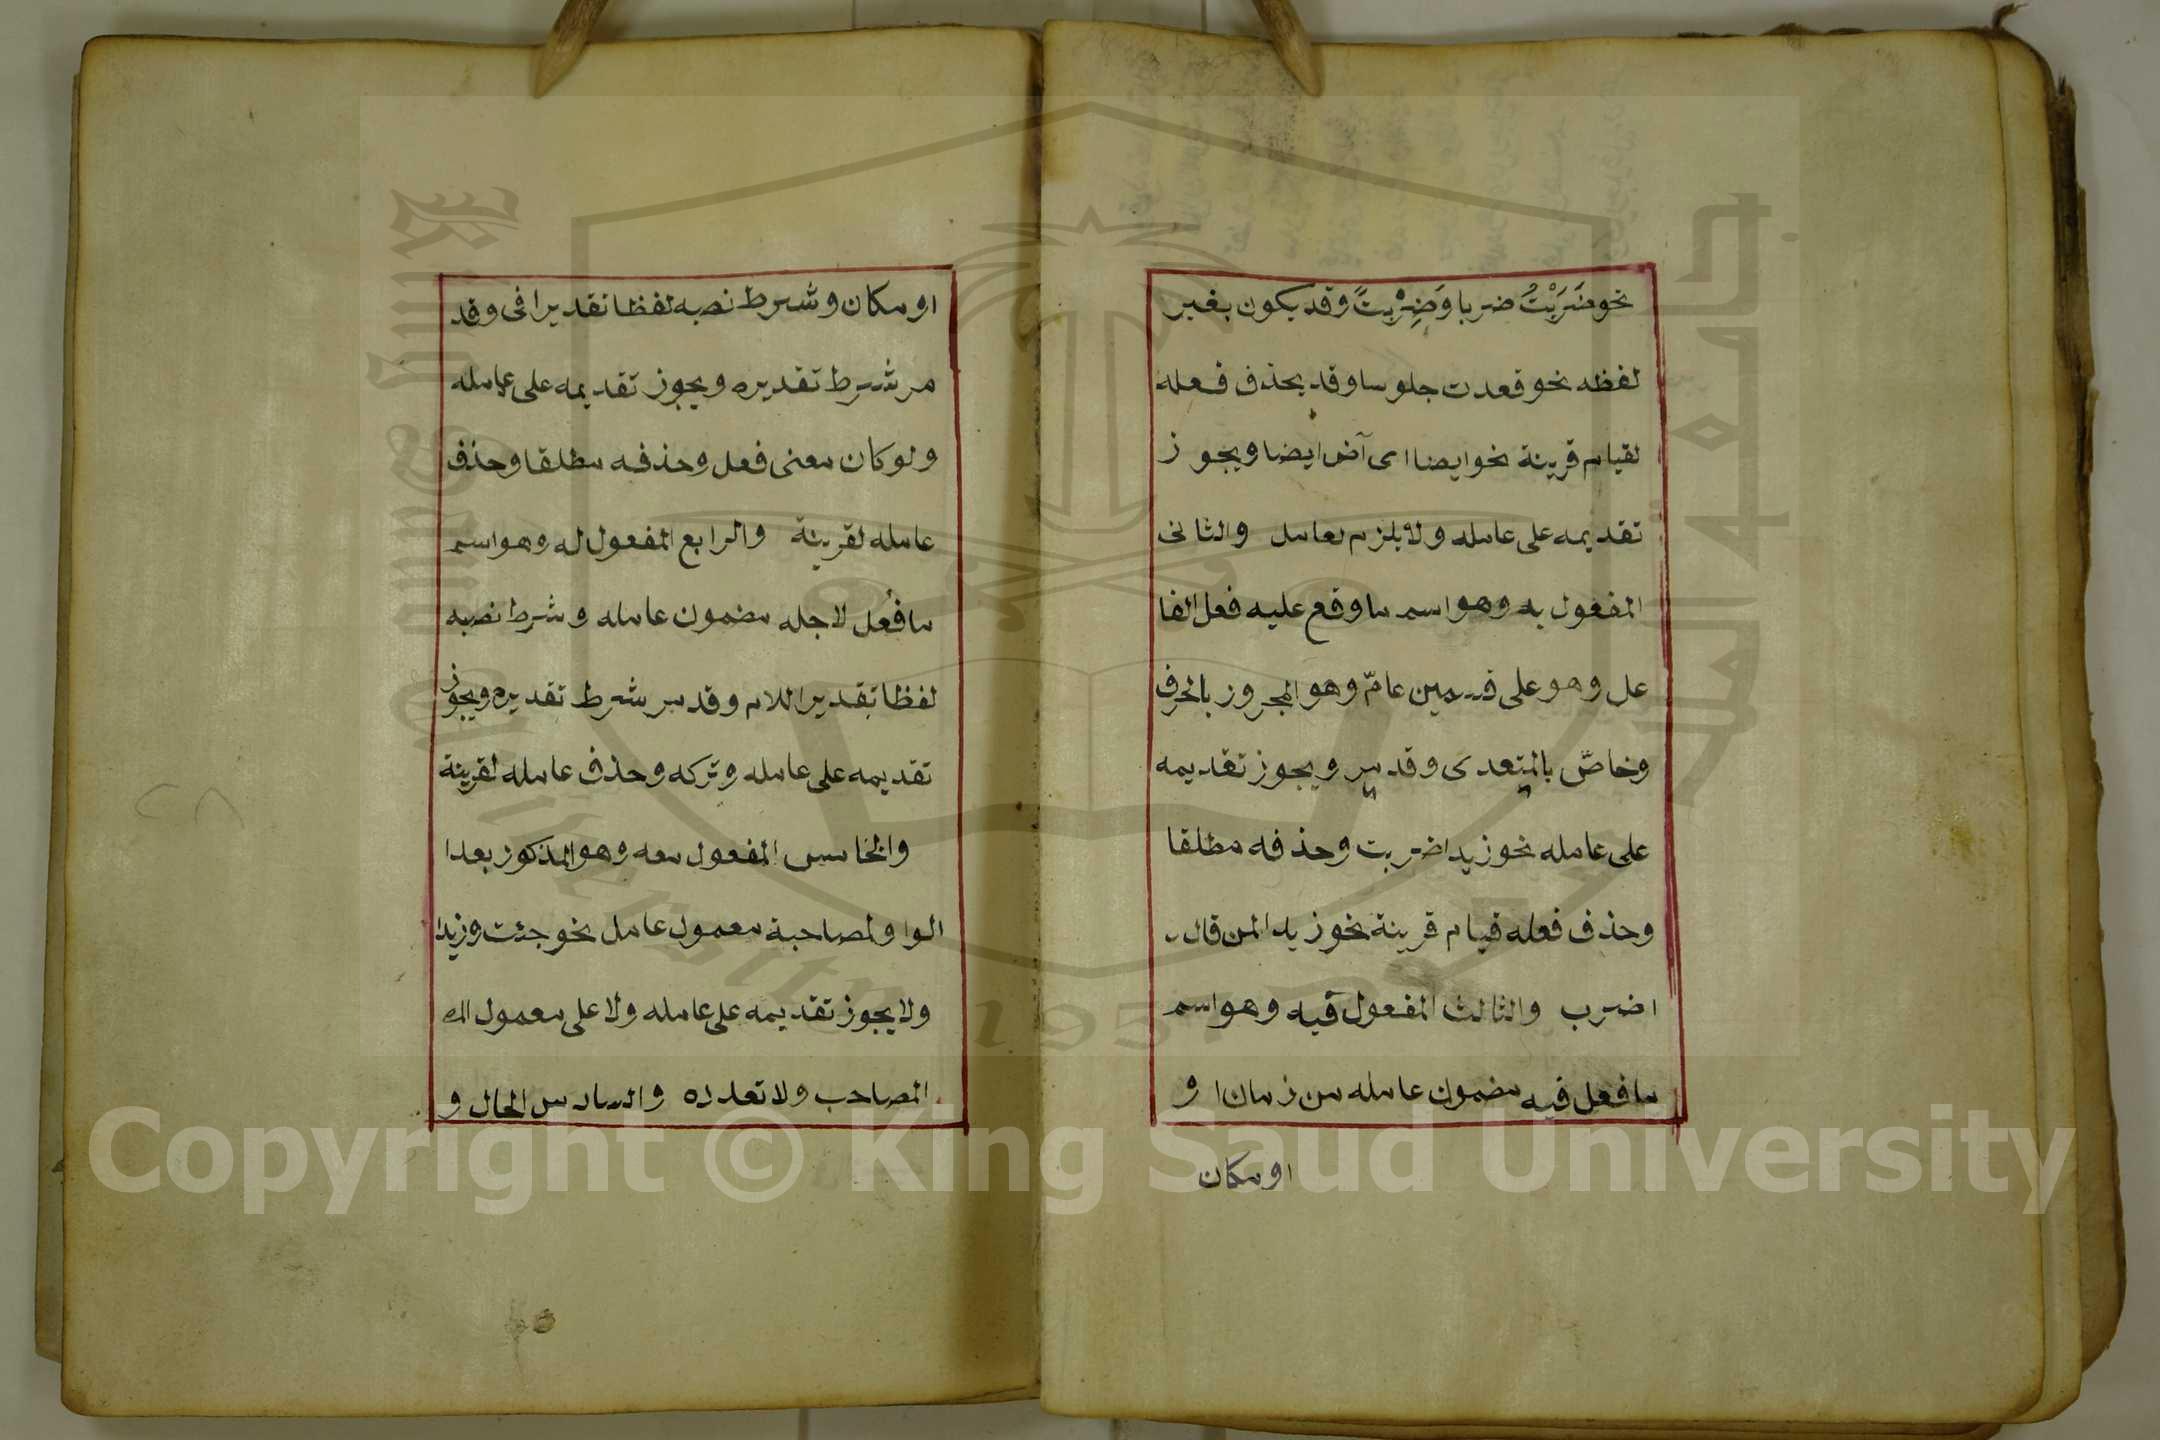 نحو ضَرَبْتُ ضربا وَضِرْبتً وقد يكون بغير
لفظه نحو قعدت جلوسا وقد يحذف فعله
لقيام قرينة نحو ايضا اى آض ايضا ويجوز
تقديمه على عامله ولا يلزم لعامل والثانى
المفعول به وهو اسم ما وقع عليه فعل الفا
عل وهو على قسمين عامّ وهو المجرور بالحرف
وخاصّ بالمتعدى وقد مر ويجوز تقديمه
على عامله نحو زيدا ضربت وحذفه مطلقا
وحذف فعله قيام قرينة نحو زيدا لمن قال
اضرب والثالث المفعول فيه وهو اسم
ما فعل فيه مضمون عامله من زمان ا و
او مكان
او مكان وشرط نصبه لفظا تقدير فى وقد
مر شرط تقديره ويجوز تقديمه على عامله
ولو كان معنى فعل وحذفه مطلقا وحذف
عامله لقرينة والرابع المفعول له وهو اسم
ما فُعل لاجله مضمون عامله وشرط نصبه
لفظا تقدير اللام وقد مر شرط تقديره ويجوز
تقديمه على عامله وتركه وحذف عامله لقرينة
والخامس المفعول معه وهو المذكور بعد ا
الواو لمصاحبة معمول عامل نحو جئت وزيدا
ولا يجوز تقديمه على عامله ولا على معمول الم
المصاحب ولا تعدده والسادس الحال و
Copyright © King Saud University
King Saud University
1957
جامعة الملك سعود